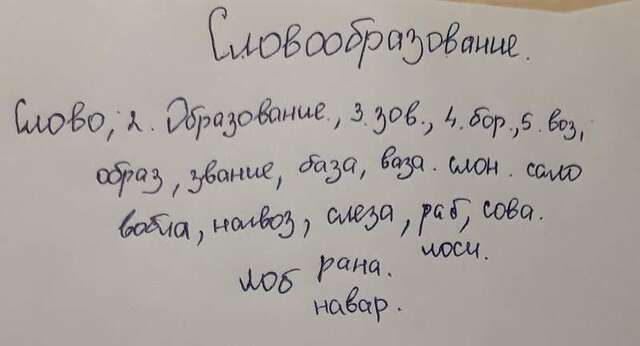 Словообразование.
Слово, 2. Образование., 3. зов., 4. бор., 5. воз,
образ, звание, база, ваза. слон. сало
вобла, навоз, слеза, раб, сова.
лоб рана. лоси.
навар.